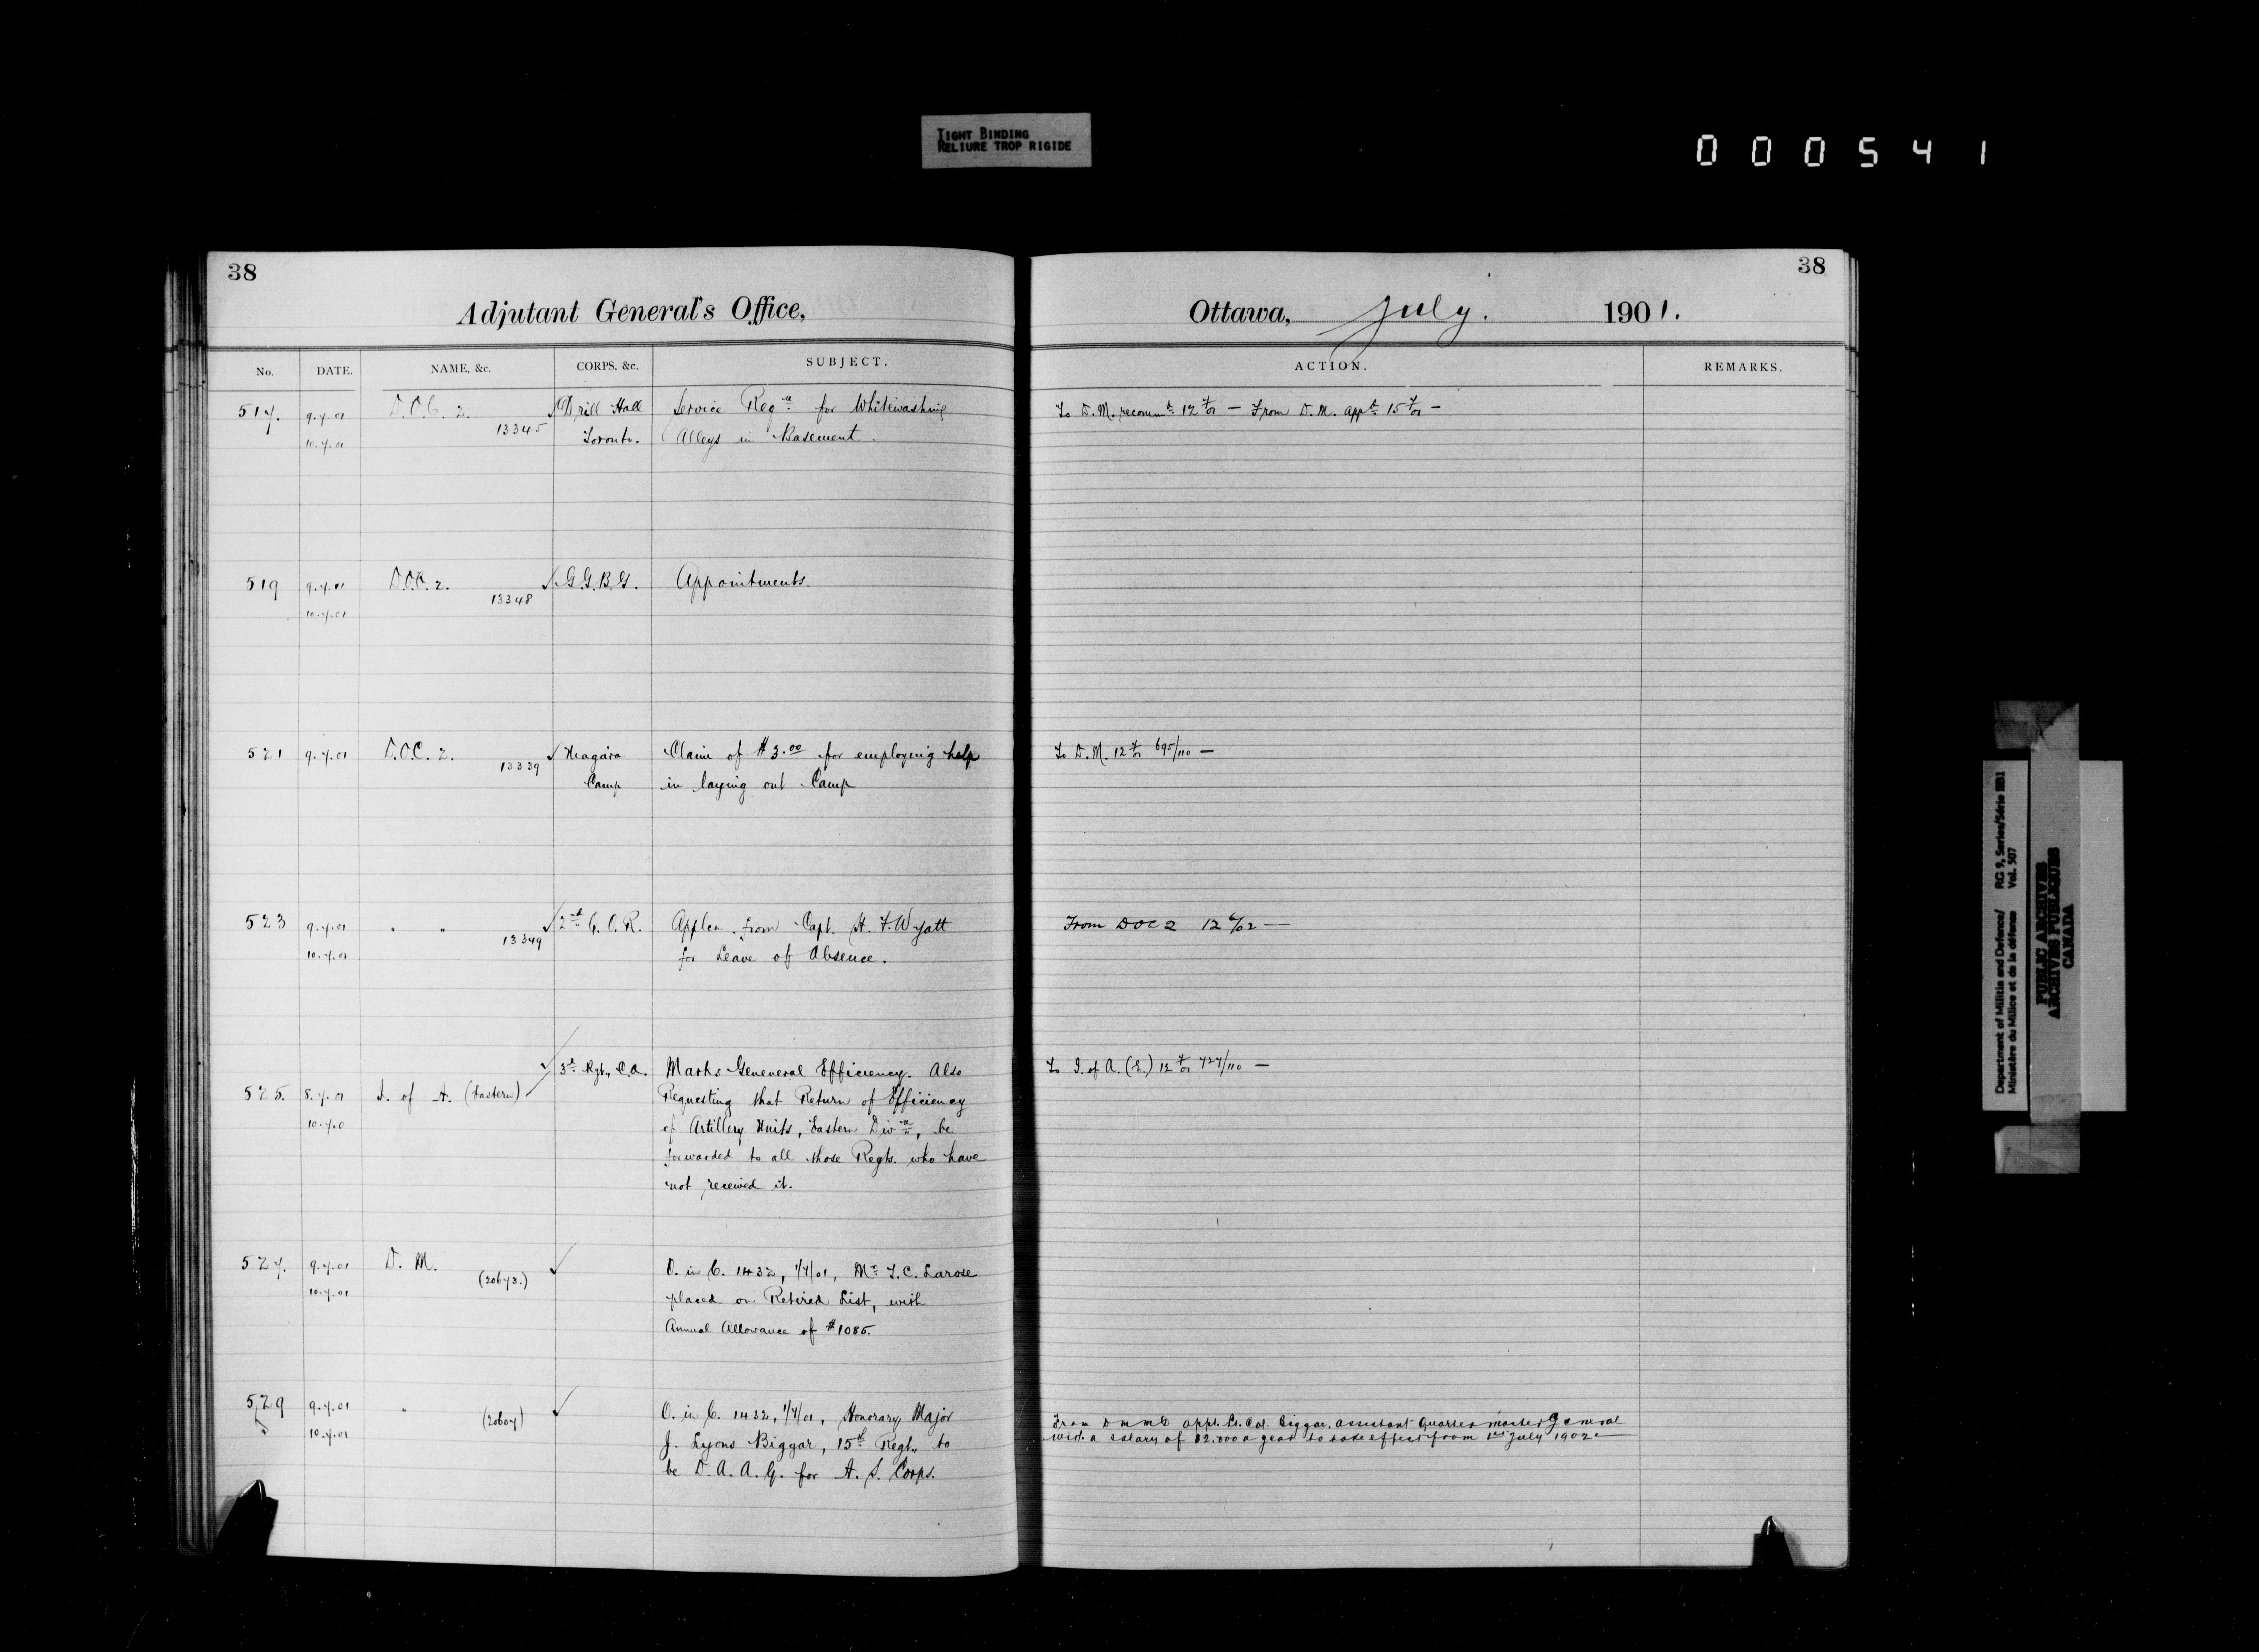 TIGHT BINDING
RELIURE TROP RIGIDE
000541
38
Adjutant General's Office,
No. DATE. NAME, &c. CORPS, &c. SUBJECT.
517. 9.7.01 D.O.C. 2. ✓ Drill Hall Service Reqn for Whitewashing
10.7.01 13345 Toronto. Alleys in Basement.
519 9.7.01 D.O.C. 2. ✓ G.G.B.G. Appointments.
10.7.01 13348
521 9.7.01 D.O.C. 2. ✓ Niagara Claim of $3.00 for employing help
13339 Camp in laying out Camp
523 9.7.01 " " ✓ 2nd Q.O.R. Applcn. from Capt. H. F. Wyatt
10.7.01 13349 for Leave of Absence.
✓ 3rd Regt. C.A. Marks Geneneral Efficiency. Also
525. 8.7.01 I. of A. (Eastern) Requesting that Return of Efficiency
10.7.0 of Artillery Units, Eastern Divn, be
forwarded to all those Regts. who have
not received it.
527. 9.7.01 D. M. (20673.) ✓ O. in C. 1432, 1/7/01, Mr. T. C. Larose
10.7.01 placed on Retired List, with
Annual Allowance of $1085.
529 9.7.01 " (20607) ✓ O. in C. 1432, 1/7/01, Honorary Major
10.7.01 J. Lyons Biggar, 15th Regt. to
be D. A. A. G. for A. S. Corps.
38
Ottawa, July. 1901.
ACTION. REMARKS.
To D.M. recommd. 12/7/01 — From D.M. appd. 15/7/01 —
To D.M. 12/7/01 695/110 —
From DOC 2 12 6/02 —
To I. of A. (E.) 12/7/01 727/110 —
From D M M D appt. Lt. Col. Biggar, Assistant Quarter master General
with a salary of $2.000 a year to take effect from 1st July 1902 —
Department of Militia and Defence/ RG 9, Series/Série IIB1
Ministère du Milice et de la défense Vol. 507
PUBLIC ARCHIVES
ARCHIVES PUBLIQUES
CANADA